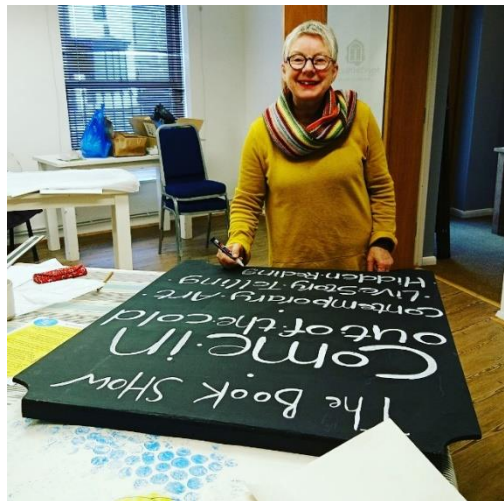 The Book SHOW
Come in
out of the cold
Contemporary. Art.
. Live Story Telling.
Hidden Reding